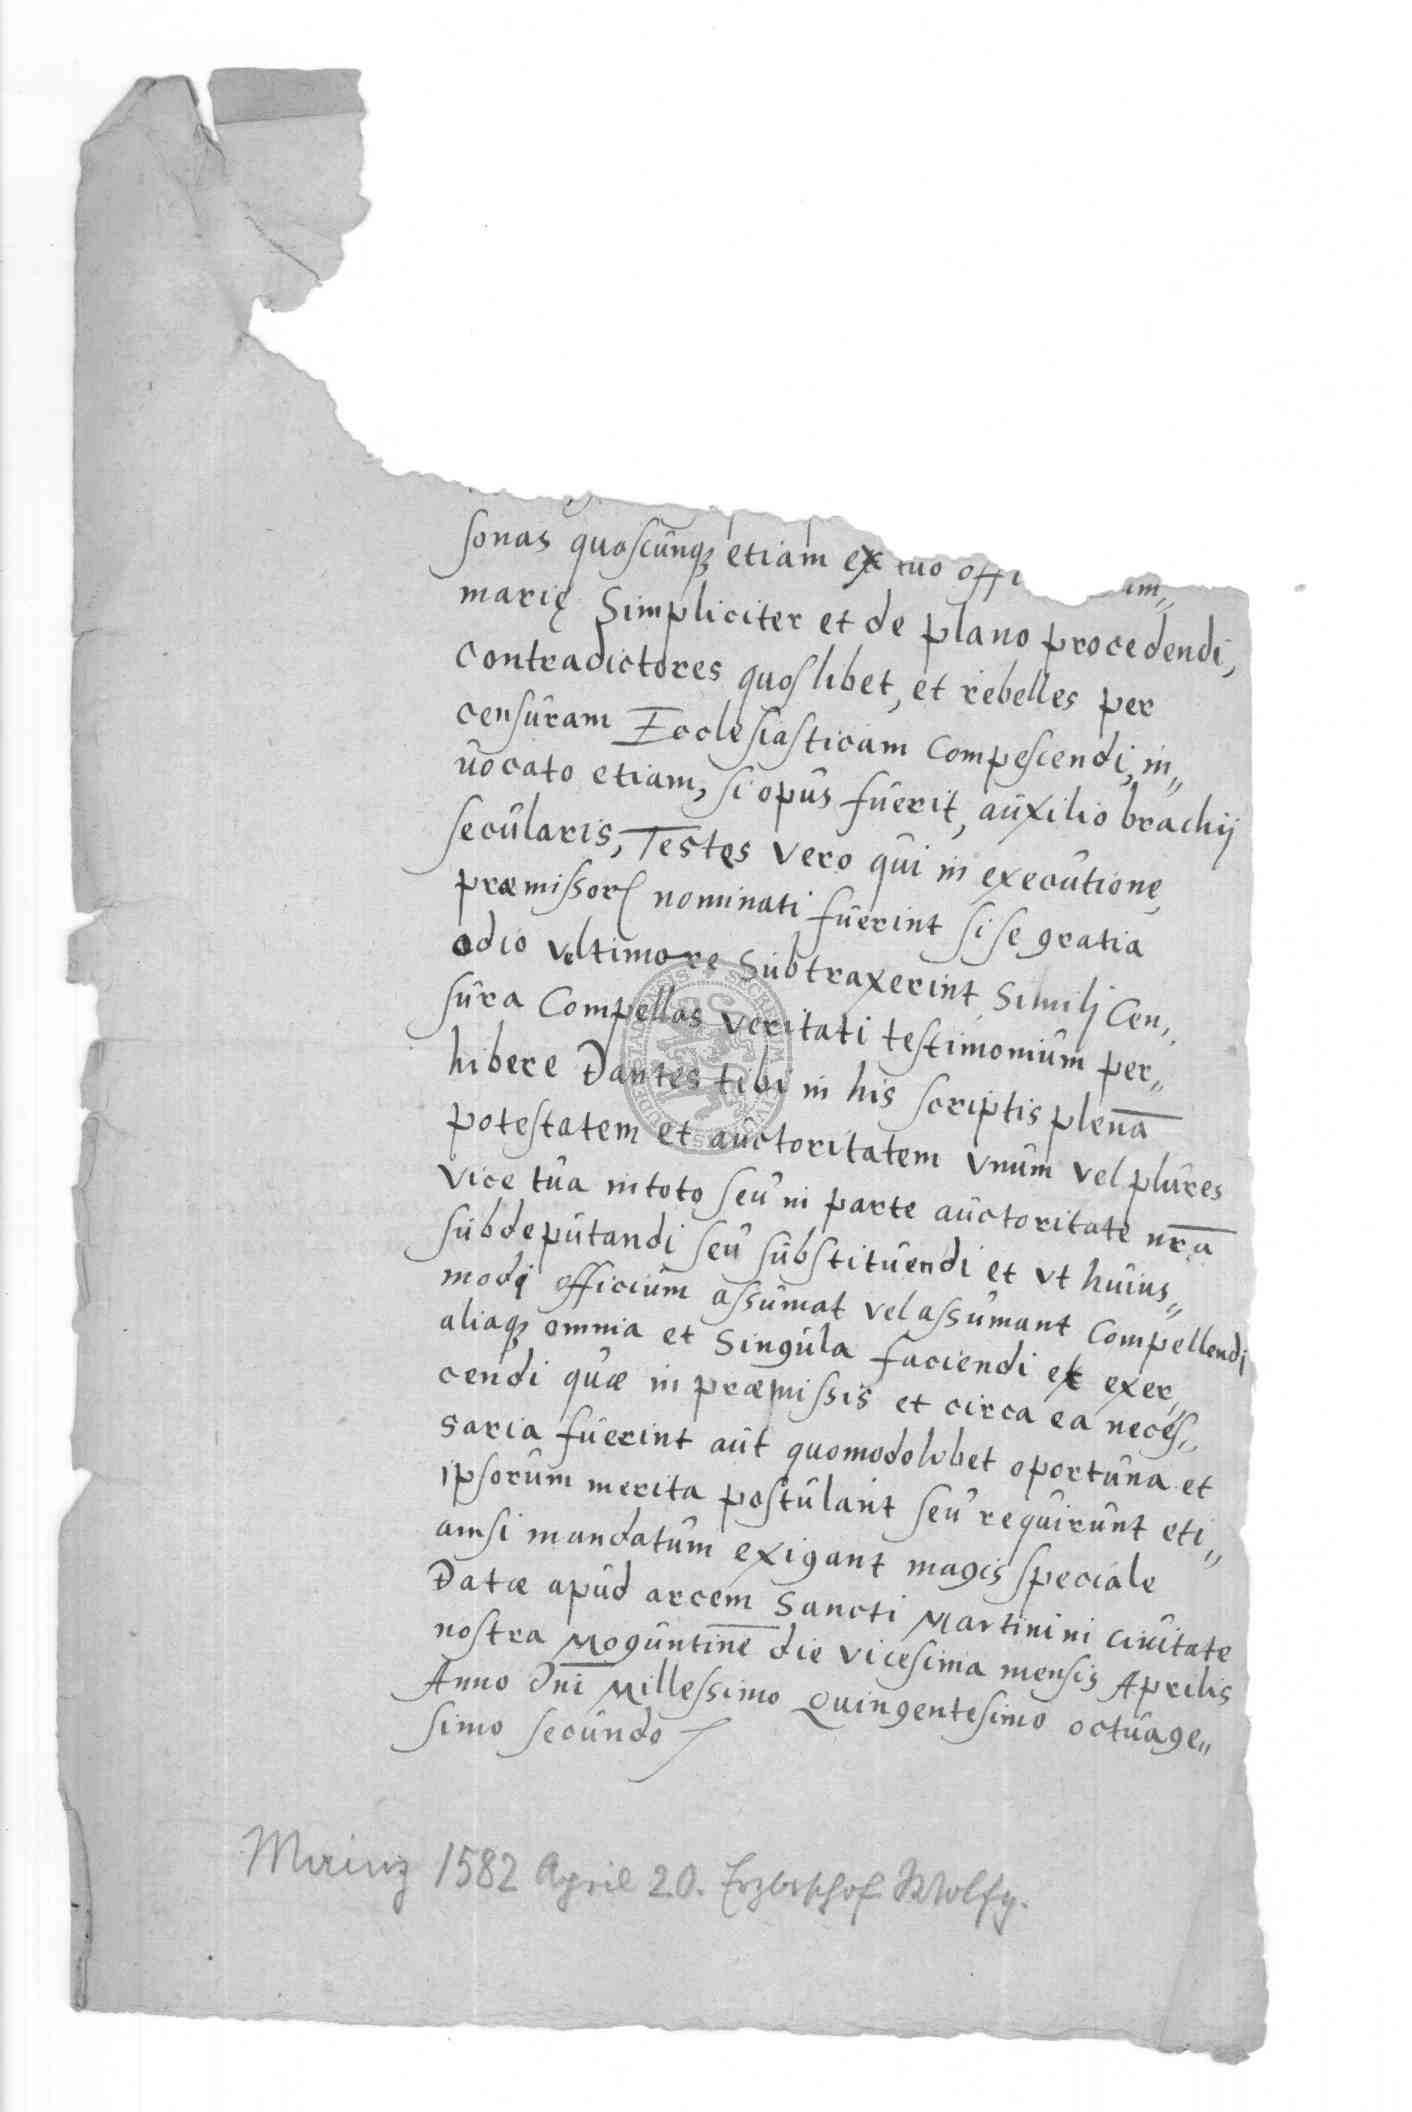 sonas quoscunq etiam ex tuo offi am„
marię Simpliciter et de plano procedendi,
contradictores quoslibet, et rebelles per
censuram Ecclesiasticam Compescendi, in„
uocato etiam, si opus fuerit, auxilio brachij
secularis, Testes vero qui in executione
præmissor nominati fuerint si se gratia
odio vel timore subtraxerint, Simili Cen„
sura Compellas veritati testimonium per„
hibere Dantes tibi in his scriptis plenā
potestatem et auctoritatem vnum vel plures
vice tua in toto seu in parte auctoritate nrā
subdeputandi seu substituendi et vt huius„
modi officium assumat vel assumant Compellendi
aliaq omnia et Singula faciendi et exer„
cendi quæ in præmissis et circa ea neces„
saria fuerint aut quomodolibet oportuna et
ipsorum merita postulant seu requirunt eti„
amsi mandatum exigant magis speciale
Datæ apud arcem Sancti Martini in ciuitate
nostra Moguntine die vicesima mensis Aprilis
Anno Dni Millessimo Quingentesimo octuage„
simo secundo
Mainz 1582 April 20. Erzbischof Wolfg.